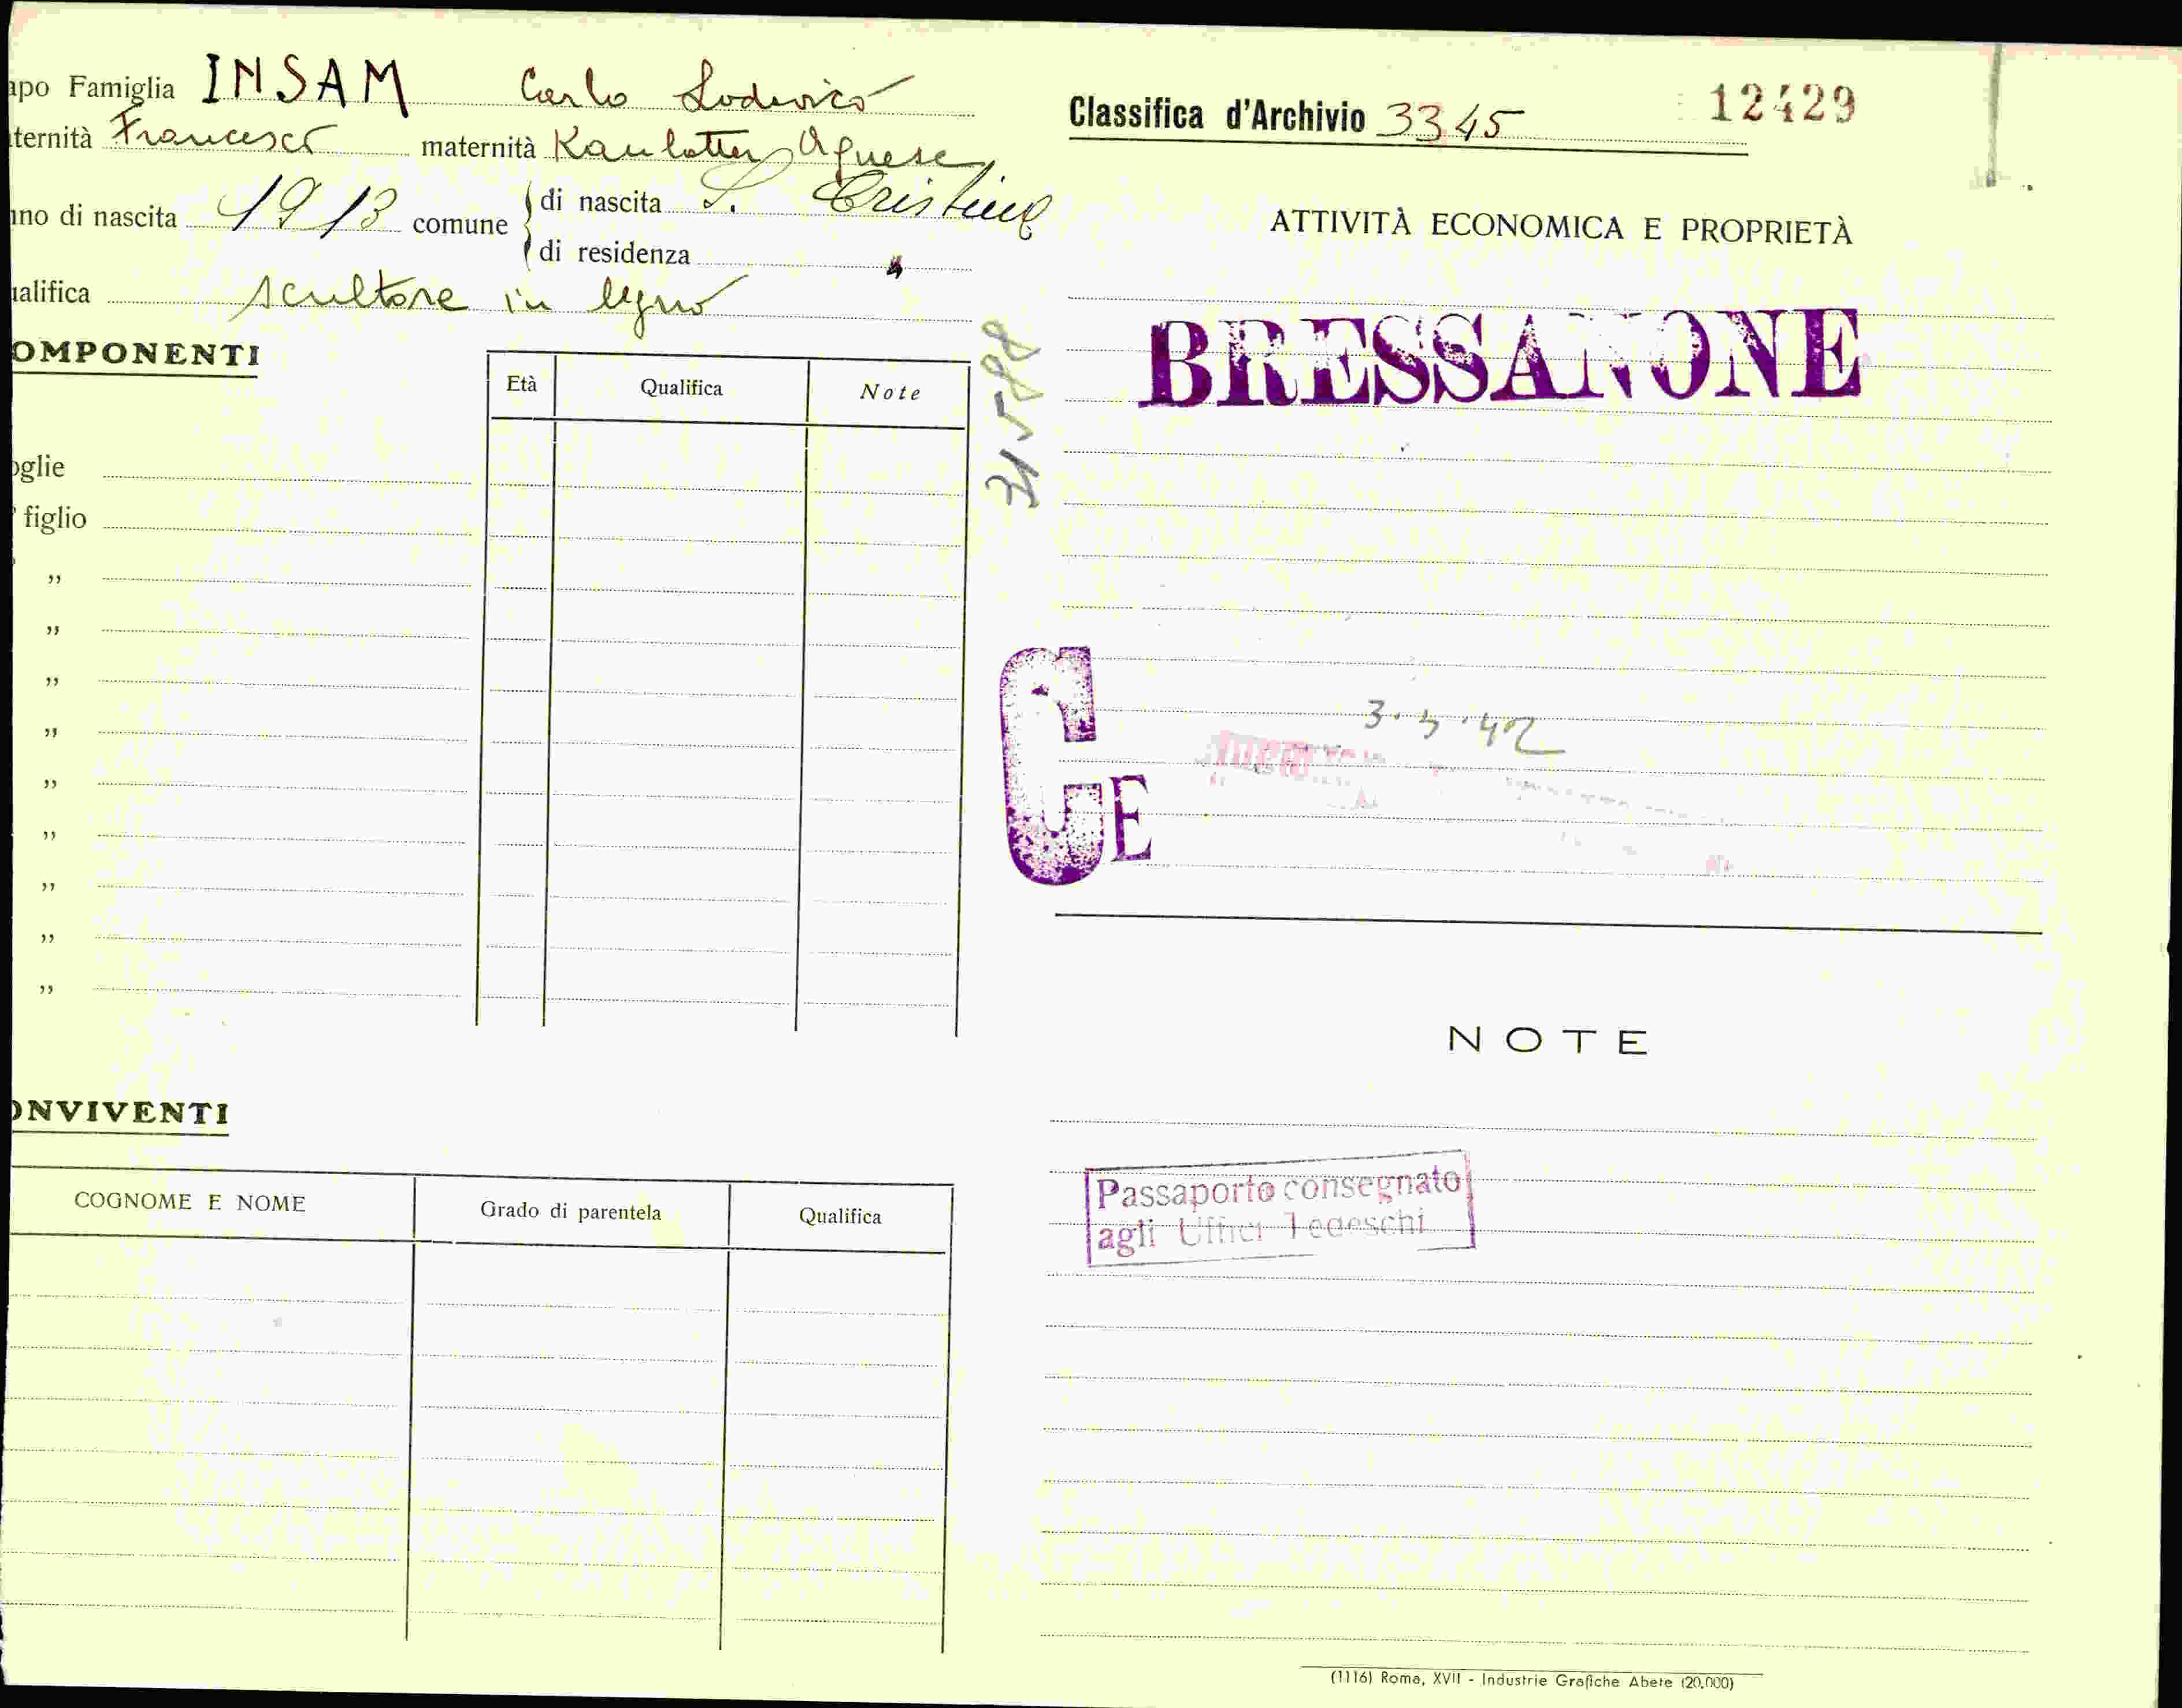 apo Famiglia INSAM Carlo Lodovico
ternità Francesco maternità Kaulotter Agnese
nno di nascita 1913 comune di nascita S. Cristina
di residenza "
ualifica scultore in legno
OMPONENTI
Età Qualifica Note
oglie
figlio
"
"
"
"
"
"
"
"
"
ONVIVENTI
COGNOME E NOME Grado di parentela Qualifica
Classifica d'Archivio 3345
12429
ATTIVITÀ ECONOMICA E PROPRIETÀ
BRESSANONE
CE
NOTE
Passaporto consegnato
agli Uffici Tedeschi
(1116) Roma, XVII - Industrie Grafiche Abete (20.000)